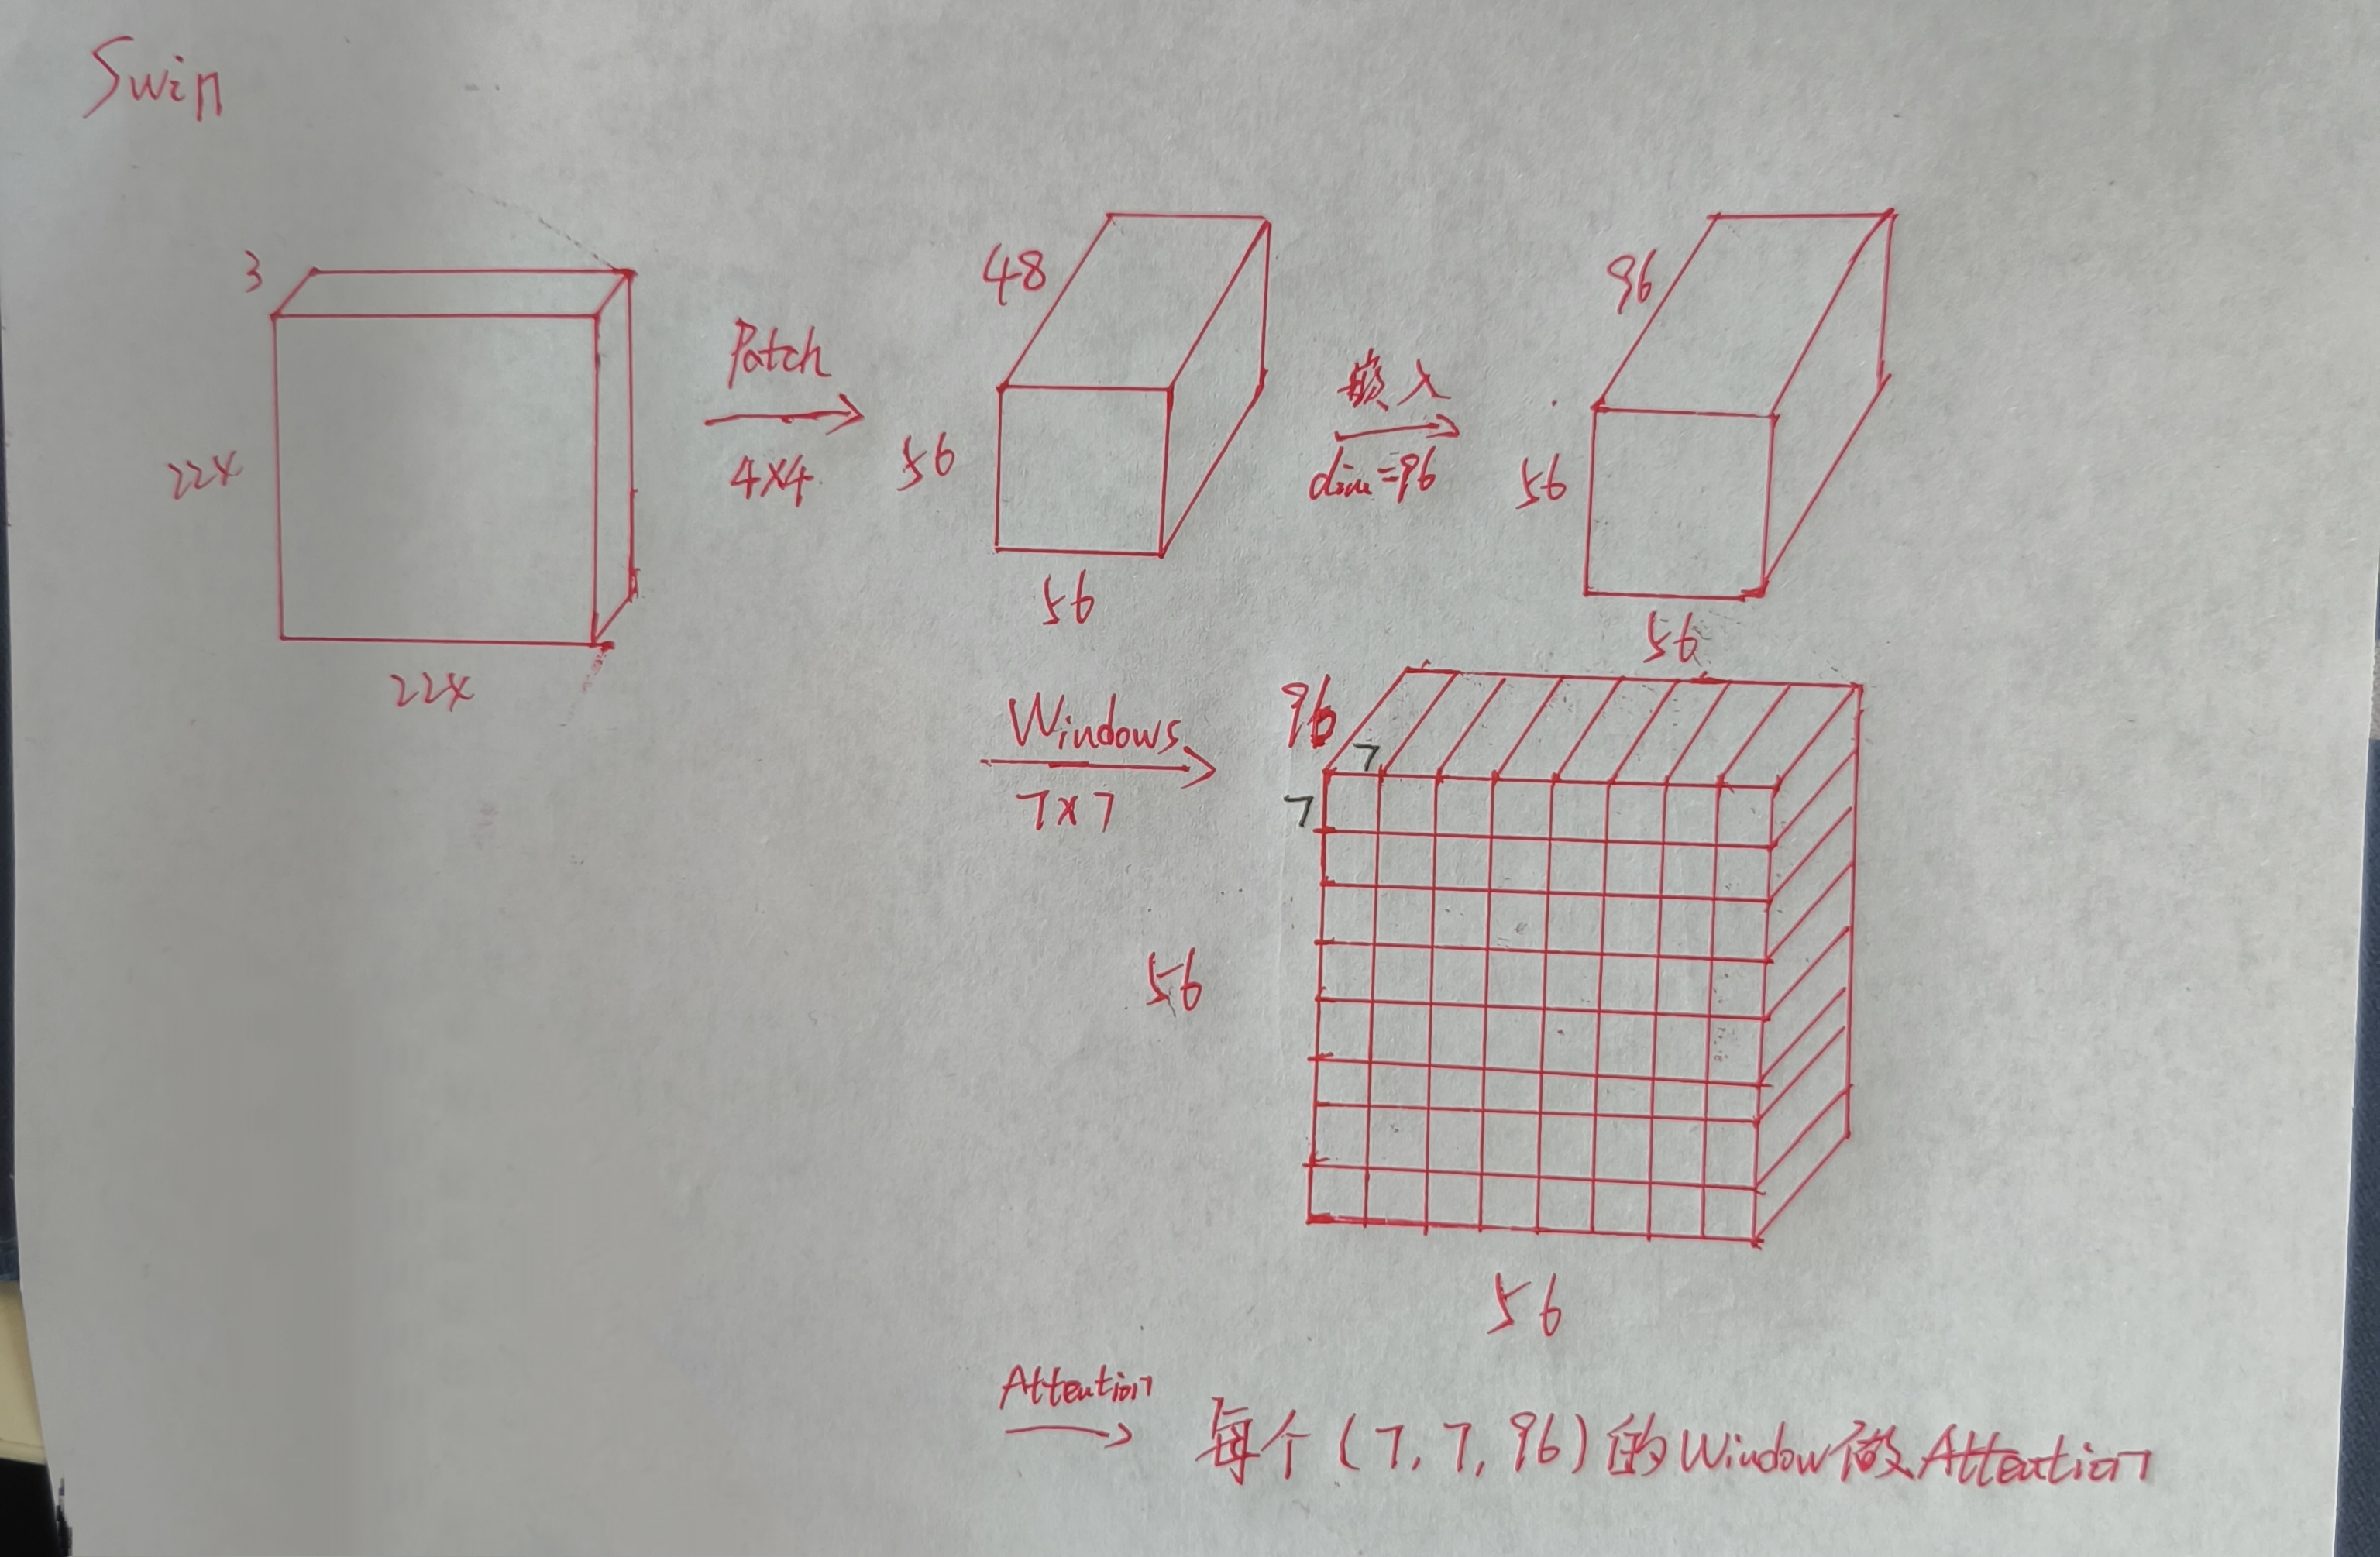 Swin
3
224
224
Patch
4×4
48
56
56
嵌入
dim=96
96
56
56
Windows
7×7
96
7
7
56
56
Attention
每个(7,7,96)的Window做Attention